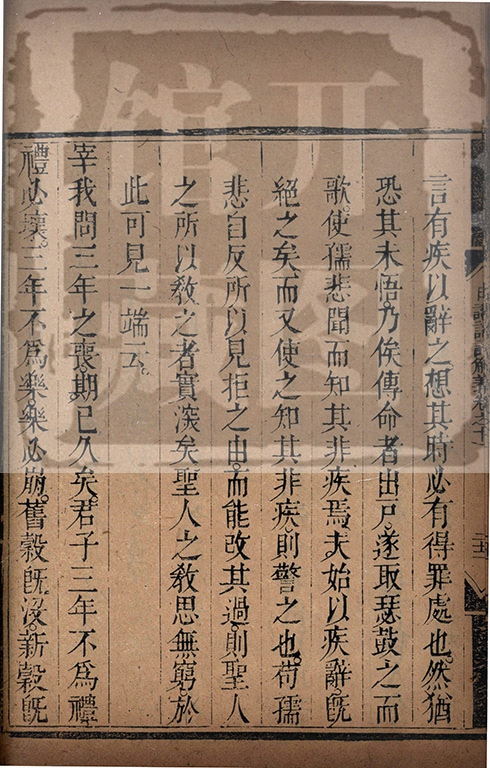 言有疾以辭之想其時必有得罪處也然猶
恐其未悟乃俟傳命者出戶遂取瑟鼓之而
歌使孺悲聞而知其非疾焉夫始以疾辭旣
絕之矣而又使之知其非疾則警之也苟孺
悲自反所以見拒之由而能改其過則聖人
之所以敎之者實深矣聖人之敎思無窮於
此可見一端云
宰我問三年之喪期已久矣君子三年不爲禮
禮必壞三年不爲樂樂必崩舊穀旣沒新穀旣